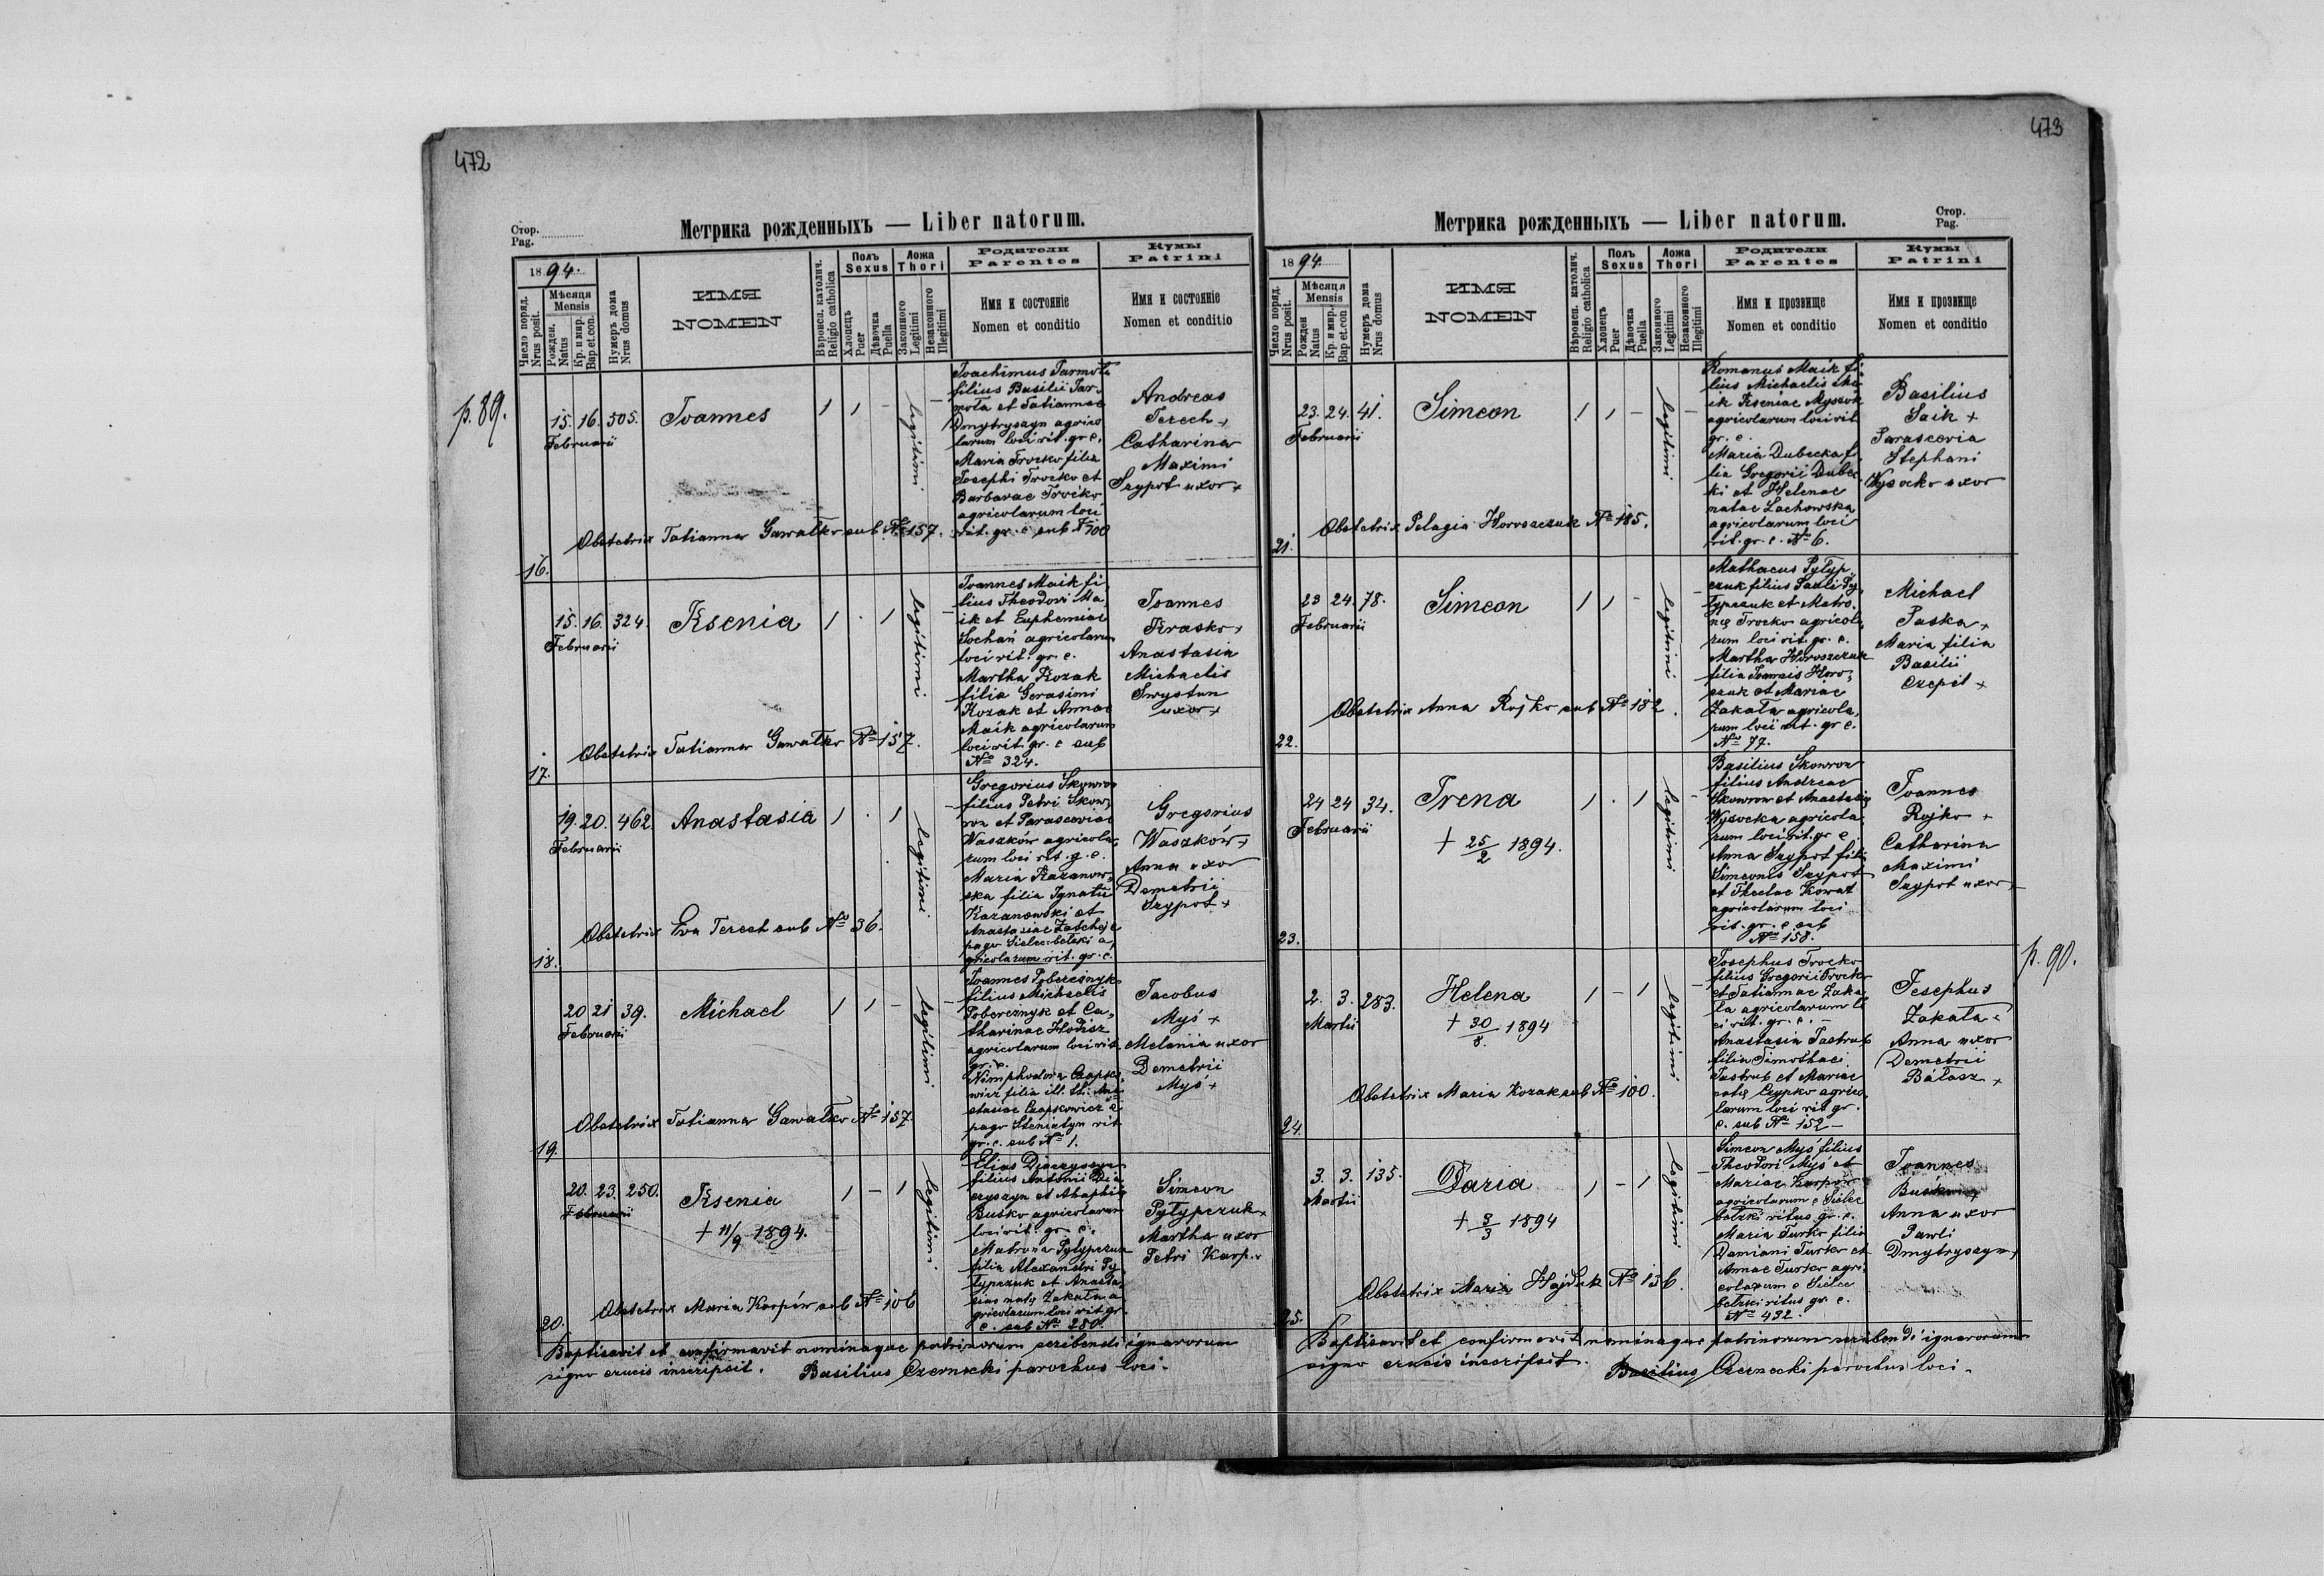 472
Стор.
Pag.
Метрика рожденныхъ — Liber natorum.
1894.
Число поряд.
Nrus posit.
Мѣсяця
Mensis
Рожден.
Natus
Кр. и мир.
Bap.et.con.
Нумеръ дома
Nrus domus
ИМЯ
NOMEN
Вѣроисп. католич.
Religio catholica
Полъ
Sexus
Хлопецъ
Puer
Дѣвочка
Puella
Ложа
Thori
Законного
Legitimi
Незаконного
Illegitimi
Родители
Parentes
Имя и состояніе
Nomen et conditio
Кумы
Patrini
Имя и состояніе
Nomen et conditio
p. 89.
16.
15. 16. 505.
Februarii
Joannes
1 1 -
legitimi
Joachimus Jarmoła
filius Basilii Jar-
moła et Tatiannae
Dmytryszyn agrico
larum loci rit. gr. c.
Maria Trocko filia
Josephi Trocko et
Barbarae Trocko
agricolarum loci
rit. gr. c sub № 700
Andreas
Terech +
Catharina
Maximi
Szypot uxor +
Obstetrix Tatianna Gawałko sub № 157.
17.
15. 16. 324.
Februarii
Ksenia
1 . 1
legitimi
Joannes Maik fi
lius Theodori Ma
ik et Euphemiae
Sochań agricolarum
loci rit. gr. c.
Martha Kozak
filia Gerasimi
Kozak et Annae
Maik agricolarum
loci rit. gr. c sub
№ 324.
Joannes
Krasko +
Anastasia
Michaelis
Swystun
uxor +
Obstetrix Tatianna Gawałko № 157.
18.
19. 20. 462
Februarii
Anastasia
1 . 1
legitimi
Gregorius Skowron
filius Petri Skow-
ron et Parasceviae
Waszków agricola-
rum loci rit. g. c.
Maria Kazanow-
ska filia Ignatii
Kazanowski et
Anastasiae
pago Sielec-bełski a
gricolarum rit. gr. c.
Gregorius
Waszków +
Anna uxor
Demetrii
Szypot +
Obstetrix Eva Terech sub № 36.
19.
20 21 39.
Februarii
Michael
1 1 -
legitimi
Joannes Pobereżnyk
filius Michaelis
Pobereznyk et Ca-
tharinae Hodisz
agricolarum loci rit
gr. c.
Nimphodora Czapko-
wicz filia ill. th. Ana
stasiae Czapkowicz e
pago Steniatyn rit
gr. c. sub № 1.
Jacobus
Myś +
Melania uxor
Demetrii
Myś +
Obstetrix Tatianna Gawałko № 157.
20.
20. 23. 250.
Februarii
Ksenia
+ 11/9 1894.
1 - 1
legitimi
Elias Diaczyszyn
filius Antonii Dia
czyszyn et Ahaphiae
Buśko agricolarum
loci rit. gr. c.
Matrona Pyłypczuk
filia Alexandri Py
łypczuk et Anasta
siae natae Zakała a
gricolarum loci rit gr.
c. sub № 280.
Simeon
Pyłypczuk +
Martha uxor
Petri Karp. +
Obstetrix Maria Karpów sub № 106
Baptisavit et confirmavit nominaque patrinorum scribendi ignarorum
signo crucis inscripsit. Basilius Czernecki parochus loci.
473
Стор.
Pag.
Метрика рожденныхъ — Liber natorum.
1894.
Число поряд.
Nrus posit.
Мѣсяця
Mensis
Рожден
Natus
Кр. и мир.
Bap.et.con
Нумеръ дома
Nrus domus
ИМЯ
NOMEN
Вѣроисп. католич.
Religio catholica
Полъ
Sexus
Хлопецъ
Puer
Дѣвочка
Puella
Ложа
Thori
Законного
Legitimi
Незаконного
Illegitimi
Родители
Parentes
Имя и прозвище
Nomen et conditio
Кумы
Patrini
Имя и прозвище
Nomen et conditio
21.
23. 24. 41.
Februarii
Simeon
1 1 -
legitimi
Romanus Maik fi
lius Michaelis Ma
ik Kseniae Myszok
agricolarum loci rit
gr. c.
Maria Dubecka fi
lia Gregorii Dubec
ki et Helenae
natae Lachowska
agricolarum loci
rit. gr. c. № 6.
Basilius
Saik +
Parascevia
Stephani
Wysocko uxor
Obstetrix Pelagia Horoszczuk № 185.
22.
23 24. 78.
Februarii
Simeon
1 1 -
legitimi
Mathaeus Pyłyp
czuk filius Pauli Py
łypczuk et Matro-
nae Trocko agricola
rum loci rit. gr. c.
Martha Horoszczuk
filia Joannis Horo-
czuk et Mariae
Zakała agricola
rum loci rit. gr c.
№ 77.
Michael
Paska +
Maria filia
Basilii
Czepil +
Obstetrix Anna Rojko sub № 182.
23.
24 24 34.
Februarii
Irena
+ 25/2 1894.
1 . 1
legitimi
Basilius Skowron
filius Andreae
Skowron et Anastasiae
Wysocka agricola
rum loci rit. gr c
Anna Szypot fili
Simeonis Szypot
et Theclae Kowal
agricolarum loci
rit. gr. c sub
№ 158.
Joannes
Rojko +
Catharina
Maximi
Szypot uxor
p. 90.
24.
2. 3. 283.
Martii
Helena
+ 30/8. 1894
1 - 1
legitimi
Josephus Trocko
filius Gregorii Trocko
et Tatiannae Zaka
ła agricolarum lo
ci rit. gr. c. -
Anastasia Jastrub
filia Timothaei
Jastrub et Mariae
natae Czypko agrico
larum loci rit gr.
c. sub № 152 -
Josephus
Zakała
Anna uxor
Demetrii
Bałasz +
Obstetrix Maria Kozak sub № 100.
25.
3. 3. 135.
Martii
Daria
+ 8/3 1894
1 - 1
legitimi
Simeon Myś filius
Theodori Myś et
Mariae Karpów
agricolarum e Sielec
bełzki ritus gr. c.
Maria Turko filia
Damiani Turko et
Annae Turko agri
colarum e Sielec
bełzki ritus gr. c.
№ 492.
Joannes
Anna uxor
Pawli
Dmytryszyn +
Obstetrix Maria Hajduk № 136.
Baptisavit et confirmavit nominaque patrinorum scribendi ignarorum
signo crucis inscripsit. Basilius Czernecki parochus loci.